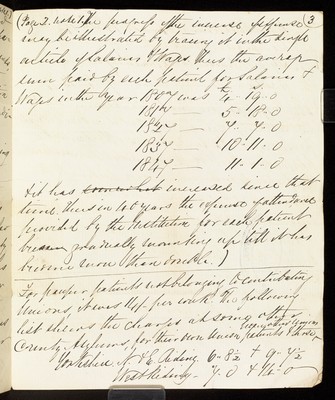 (Page 2. note 1) The progress of the increase of expense 3
may be illustrated by tracing it in the single
article of Salaries & Wages thus the average
sum paid by each patient for Salaries &
Wages in the year 1807 was £4. 18. 0
1817 — 5. 18. 0
1827 — 7. 7. 0
1837 — 10. 11. 0
1847 — 11. 1. 0
& it has increased since that
time, thus in 40 years the expense of attendance
provided by the Institution for each patient
gradually mounting up till it has
become more than double.)
For pauper patients not belonging to contributing
Unions, it was 11/ per week. The following
list shews the charges at some other
County Asylums, for their own Union patients & those
Yorkshire N & E. Riding — 6. 8½ & 9. 4½
West Riding — 7. 0 & 12. 0